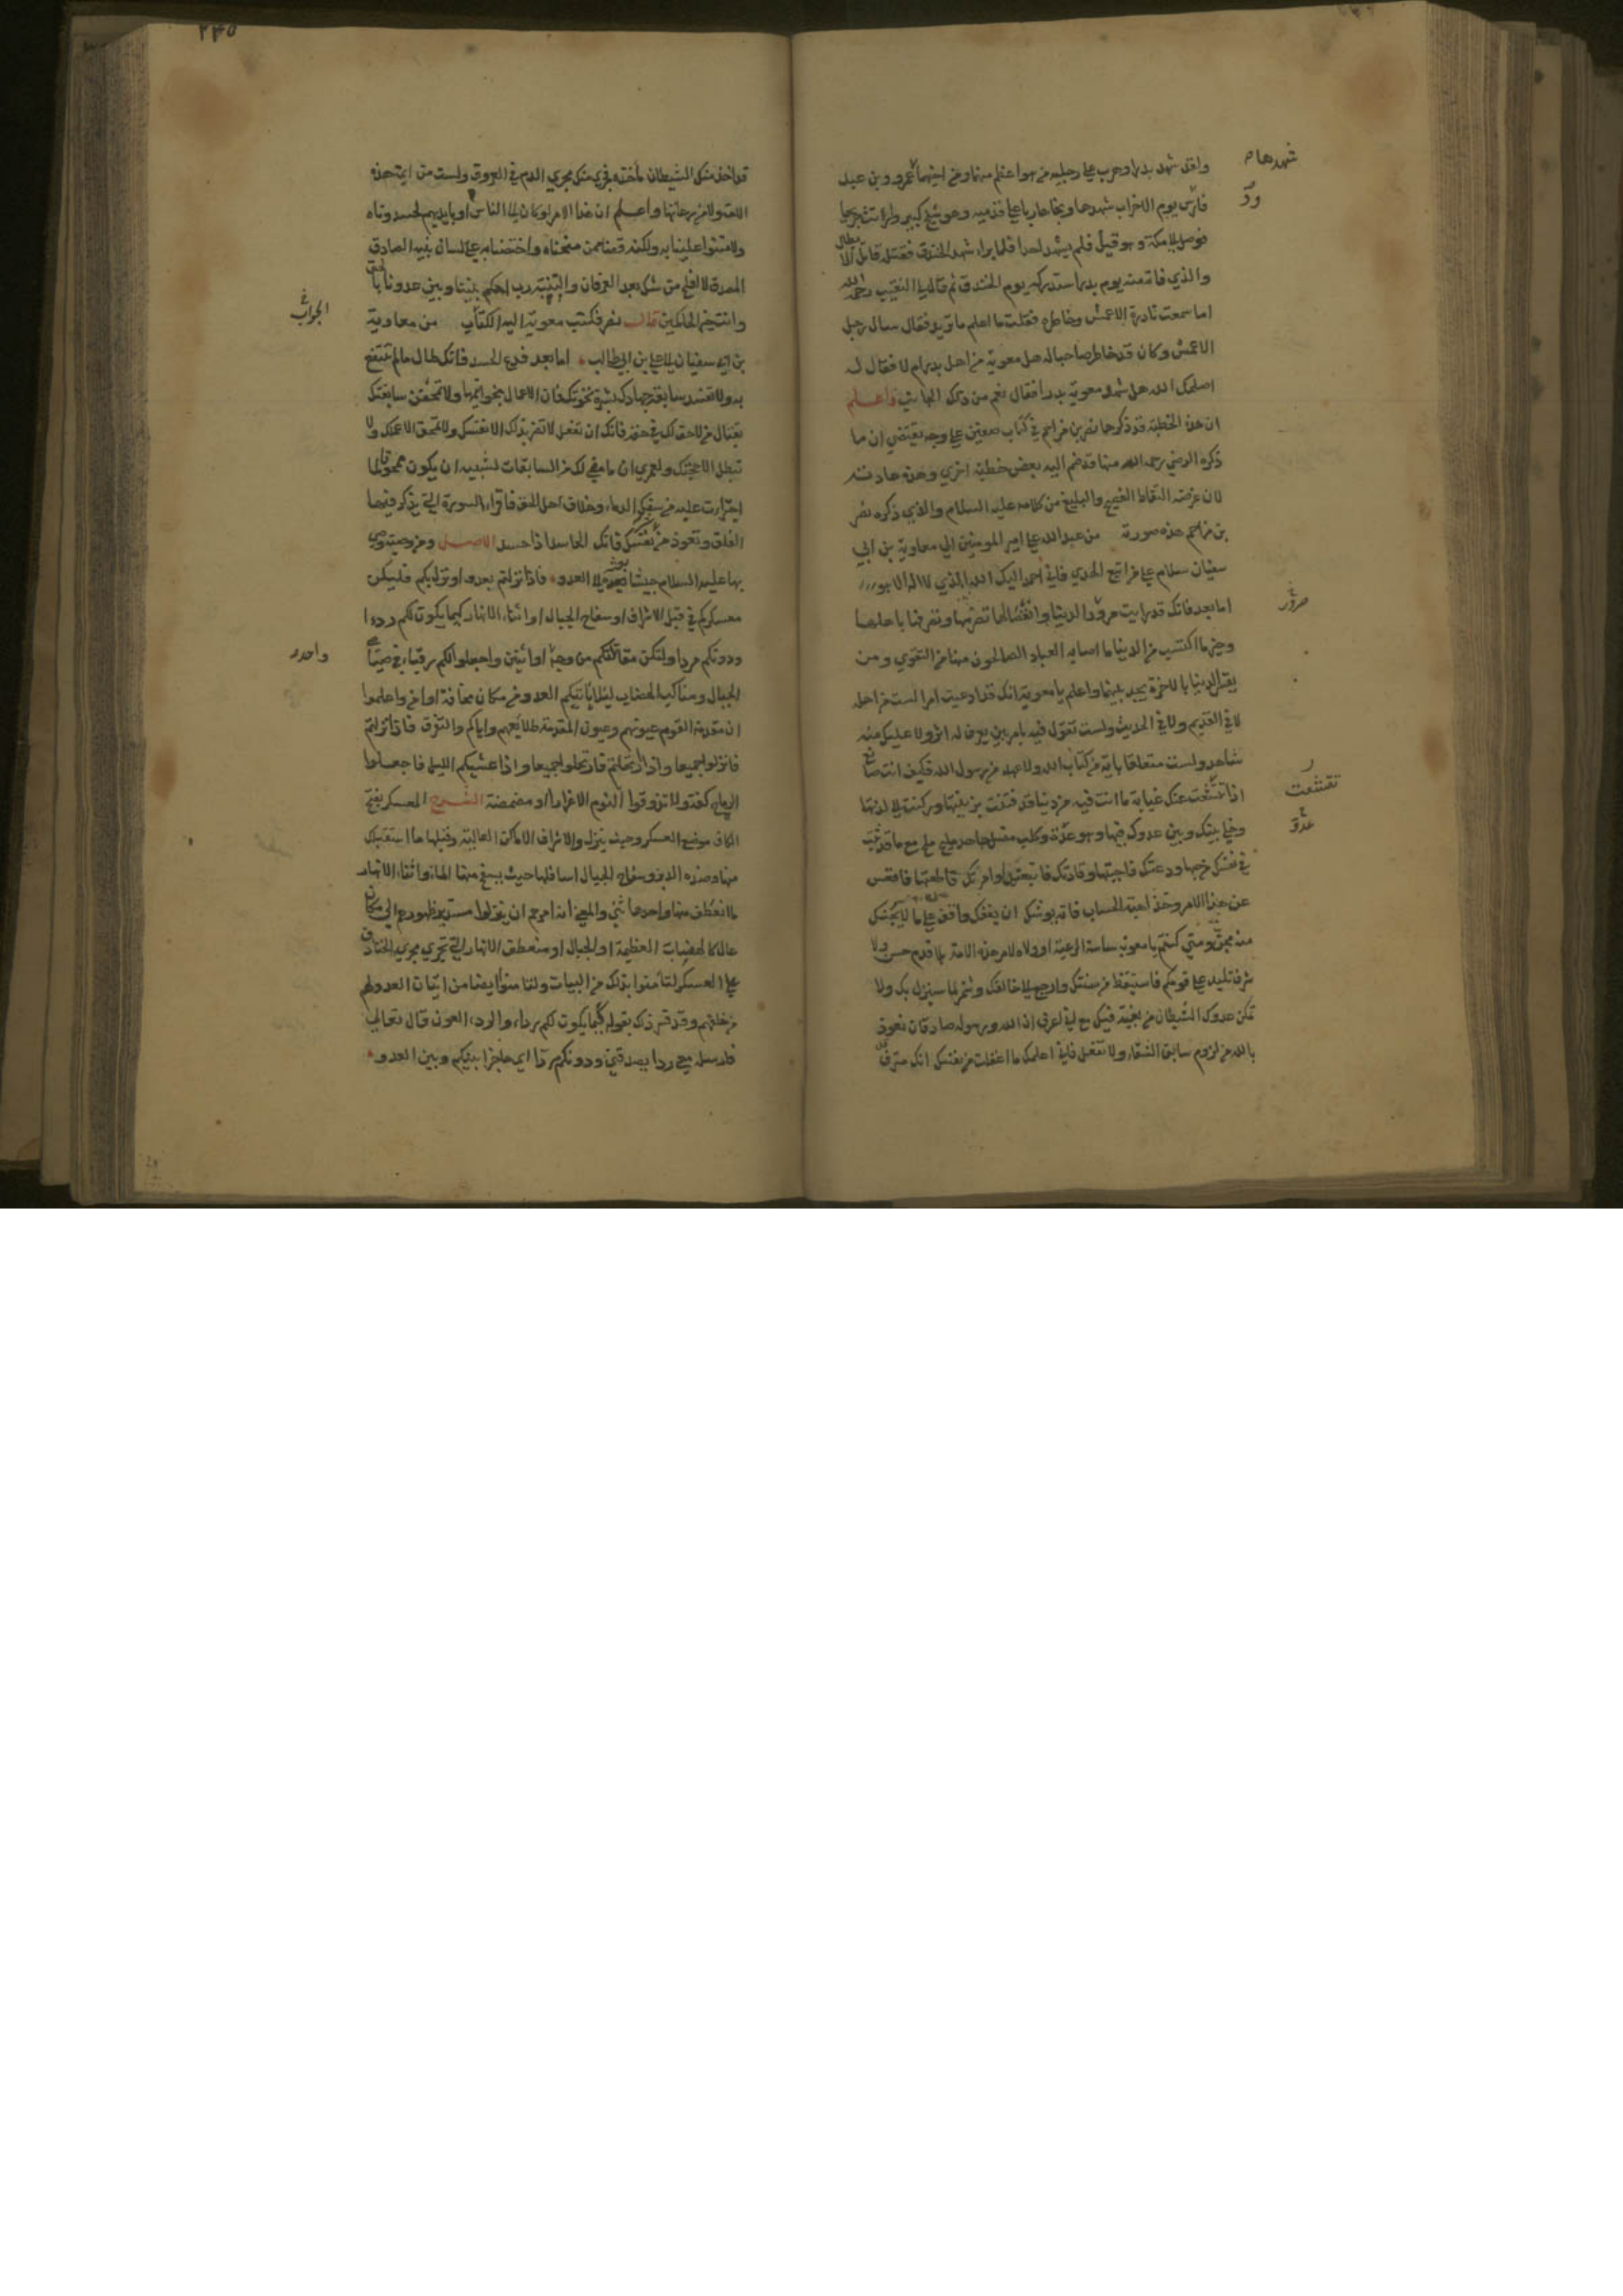 ولقد شهد بدرا وحرب علي رجليه من هو اعظم منهما ومن اخيهما عمرو بن عبد
شهدها
ودّ
فارس يوم الاحزاب شهدها ونجا هاربا علي قدميه وهو شيخ كبير وارتث جريحا
فوصل الي مكة وهو وقيذ فلم يشهد احدا فلما برا شهد الخندق فقتله قاتل الابطال
والذي فاته يوم بدر استدركه يوم الخندق ثم قال لي النقيب رحمه الله
اما سمعت نادرة الاعمش ومناظره فقلت ما اعلم ما تريد فقال سال رجل
الاعمش وكان قد خاطر صاحبا له هل معوية من اهل بدر ام لا فقال له
اصلحك الله هل شهد معوية بدرا فقال نعم من ذلك الجانب واعلم
ان هذه الخطبة قد ذكرها نصر بن مزاحم في كتاب صفين علي وجه يقتضي ان ما
ذكره الرضي رحمه الله منها قد ضم اليه بعض خطبة اخري وهذه عادته
لان غرضه التقاط الفصيح والبليغ من كلامه عليه السلام والذي ذكره نصر
بن مزاحم هذه صورته من عبد الله علي امير المومنين الي معاوية بن ابي
سفيان سلام علي من اتبع الهدي فاني احمد اليك الله الذي لا اله الا هو
اما بعد فانك قد رايت مرور الدنيا وانقضائها وتصرمها وتصرفها باهلها
وخير ما اكتسب من الدنيا ما اصابه العباد الصالحون منها من التقوي ومن
يقس الدنيا بالاخرة يجد بينهما واعلم يا معوية انك قد ادعيت امرا لست من اهله
لا في القديم ولا في الحديث ولست تقول فيه بامر بين يعرف له اثر ولا عليك منه
شاهد ولست متعلقا باية من كتاب الله ولا عهد من رسول الله فكيف انت صانع
تقشعت
اذا تقشعت عنك غيابة ما انت فيه من دنيا قد فتنت بزينتها وركنت الي لذتها
عدوّ
وخلي بينك وبين عدوك فيها وهو عدو وكلب مضل جاهد مليح ملح مع ما قد ثبت
في نفسك من حبها دعتك فاجبتها وقادتك فاتبعتها وامرتك فاطعتها فاقعس
عن هذا الامر وخذ اهبة الحساب فانه يوشك ان يقفك واقف علي ما لا يجنك
منه مجن ومتي كنتم يا معوية ساسة الرعية او ولاة لامر هذه الامة بلا قدم حسن ولا
شرف تليد علي قومكم فاستيقظ من سنتك وارجع الي خالقك وشمر لما سينزل بك ولا
تمكن عدوك الشيطان من بغيته فيك مع اني اعرف ان الله ورسوله صادقان نعوذ
بالله من لزوم سابق الشقاء والا تفعل فاني اعلمك ما اغفلت من نفسك انك مترف
٢٣٥
قد اخذ منك الشيطان ماخذه فجري منك مجري الدم في العروق ولست من ايمة هذه
الامة ولا من رعاتها واعلم ان هذا الامر لو كان الي الناس او بايديهم لحسدوناه
ولامتنوا علينا به ولكنه قضاء ممن منحناه واختصنا به علي لسان نبيه الصادق
المصدق لا افلح من شك بعد العرفان والبينة رب احكم بيننا وبين عدونا بالحق
الجواب
وانت خير الحاكمين قال نصر فكتب معوية اليه الكتاب من معاوية
بن ابي سفيان الي علي بن ابي طالب اما بعد فدع الحسد فانك طالما لم تنتفع
به ولا تفسد سابقة جهادك بشره نخوتك فان الاعمال بخواتيمها ولا تمحص سابقتك
بقتال من لا حق لك في حقه فانك ان تفعل لا تضر بذلك الا نفسك ولا تمحق الا عملك ولا
تبطل الا حجتك ولعمري ان ما مضي لك من السابقات لشبيه ان يكون ممحوقا لما
اجترات عليه من سفك الدماء وخلاف اهل الحق فاقرا السورة التي يذكر فيها
الفلق وتعوذ من نفسك فانك الحاسد اذا حسد الاصل ومن وصيته وصي
بها عليه السلام جيشا بعثه الي العدو فاذا نزلتم بعدو او نزل بكم فليكن
معسكركم في قبل الاشراف او سفاح الجبال او اثناء الانهار كيما يكون لكم ردءا
واحد
ودونكم مردا ولتكن مقاتلتكم من وجه او اثنين واجعلوا لكم رقباء في صياصي
الجبال ومناكب الهضاب لئلا ياتيكم العدو من مكان مخافة او امن واعلموا
ان مقدمة القوم عيونهم وعيون المقدمة طلائعهم واياكم والتفرق فاذا نزلتم
فانزلوا جميعا واذا ارتحلتم فارتحلوا جميعا واذا غشيكم الليل فاجعلوا
الرماح كفة ولا تذوقوا النوم الا غرارا او مضمضة الشرح المعسكر بفتح
الكاف موضع العسكر وحيث ينزل والاشراف الاماكن العالية وقبلها ما استقبلك
منها وضده الدبر وسفاح الجبال اسافلها حيث يسفح منها الماء واثناء الانهار
ما انعطف منها واحدها ثني والمعني انه امرهم ان ينزلوا مسندين ظهورهم الي مكان
عال كالهضبات العظيمة او الجبال او منعطف الانهار التي تجري مجري الخنادق
علي العسكر لتامنوا بذلك من البيات ولتامنوا ايضا من اتيان العدو لهم
من خلفهم وقد فسر ذلك بقوله كيما يكون لكم ردءا والردء العون قال تعالي
فارسله معي ردءا يصدقني ودونكم مردا اي حاجزا بينكم وبين العدو